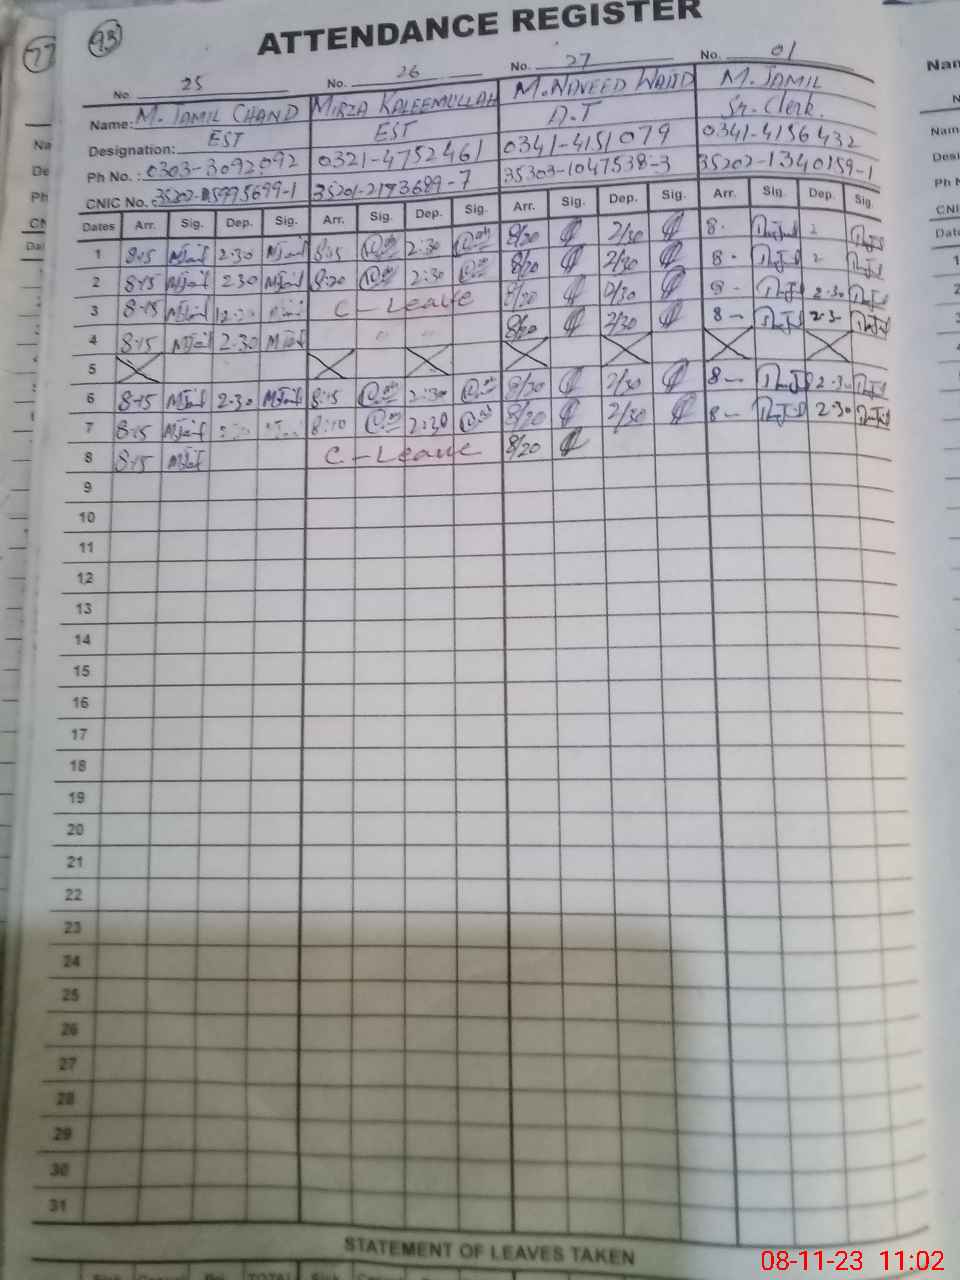 77
93
ATTENDANCE REGISTER
No. 25 No. 26 No. 27 No. 01
Name: M. JAMIL CHAND MIRZA KALEEMULLAH M. NAVEED WAJID M. JAMIL
Designation: EST EST A.T Sr. Clerk.
Ph No. : 0303-3092092 0321-4752461 0341-4151079 0341-4156432
CNIC No. : 35201-2193689-7 35303-1047538-3 35202-1340159-1
Dates Arr. Sig. Dep. Sig. Arr. Sig. Dep. Sig. Arr. Sig. Dep. Sig. Arr. Sig. Dep. Sig.
1 8:15 MJamil 2:30 MJamil 8:15 2:30 8/20 2/30 8- 2
2 8:15 MJamil 2:30 MJamil 8:20 2:30 8/20 2/30 8- 2
3 8:15 MJamil C-Leave 8/20 8- 2-30
4 8:15 MJamil 2:30 MJamil 8/20 2/30 8- 2-3-
5
6 8:15 MJamil 2:30 MJamil 8:15 2:30 8/20 2/30 8- 2-3-
7 8:15 MJamil 8:10 2:30 8/20 2/30 8- 2-30
8 8:15 MJamil C-Leave 8/20
9
10
11
12
13
14
15
16
17
18
19
20
21
22
23
24
25
26
27
28
29
30
31
STATEMENT OF LEAVES TAKEN
08-11-23 11:02